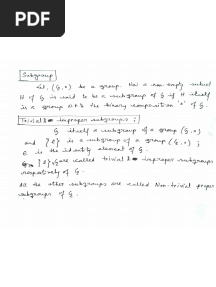 PDF
Subgroup
Let, (G, o) be a group. Now a non-empty subset
H of G is said to be a subgroup of G if H itself
is a group w.r.to the binary composition 'o' of G.
Trivial & improper subgroups :
G itself a subgroup of a group (G, o)
and {e} is a subgroup of a group (G, o) ;
e is the identity element of G.
{e}, G are called trivial & improper subgroups
respectively of G.
All the other subgroups are called Non-trivial proper
subgroups of G.